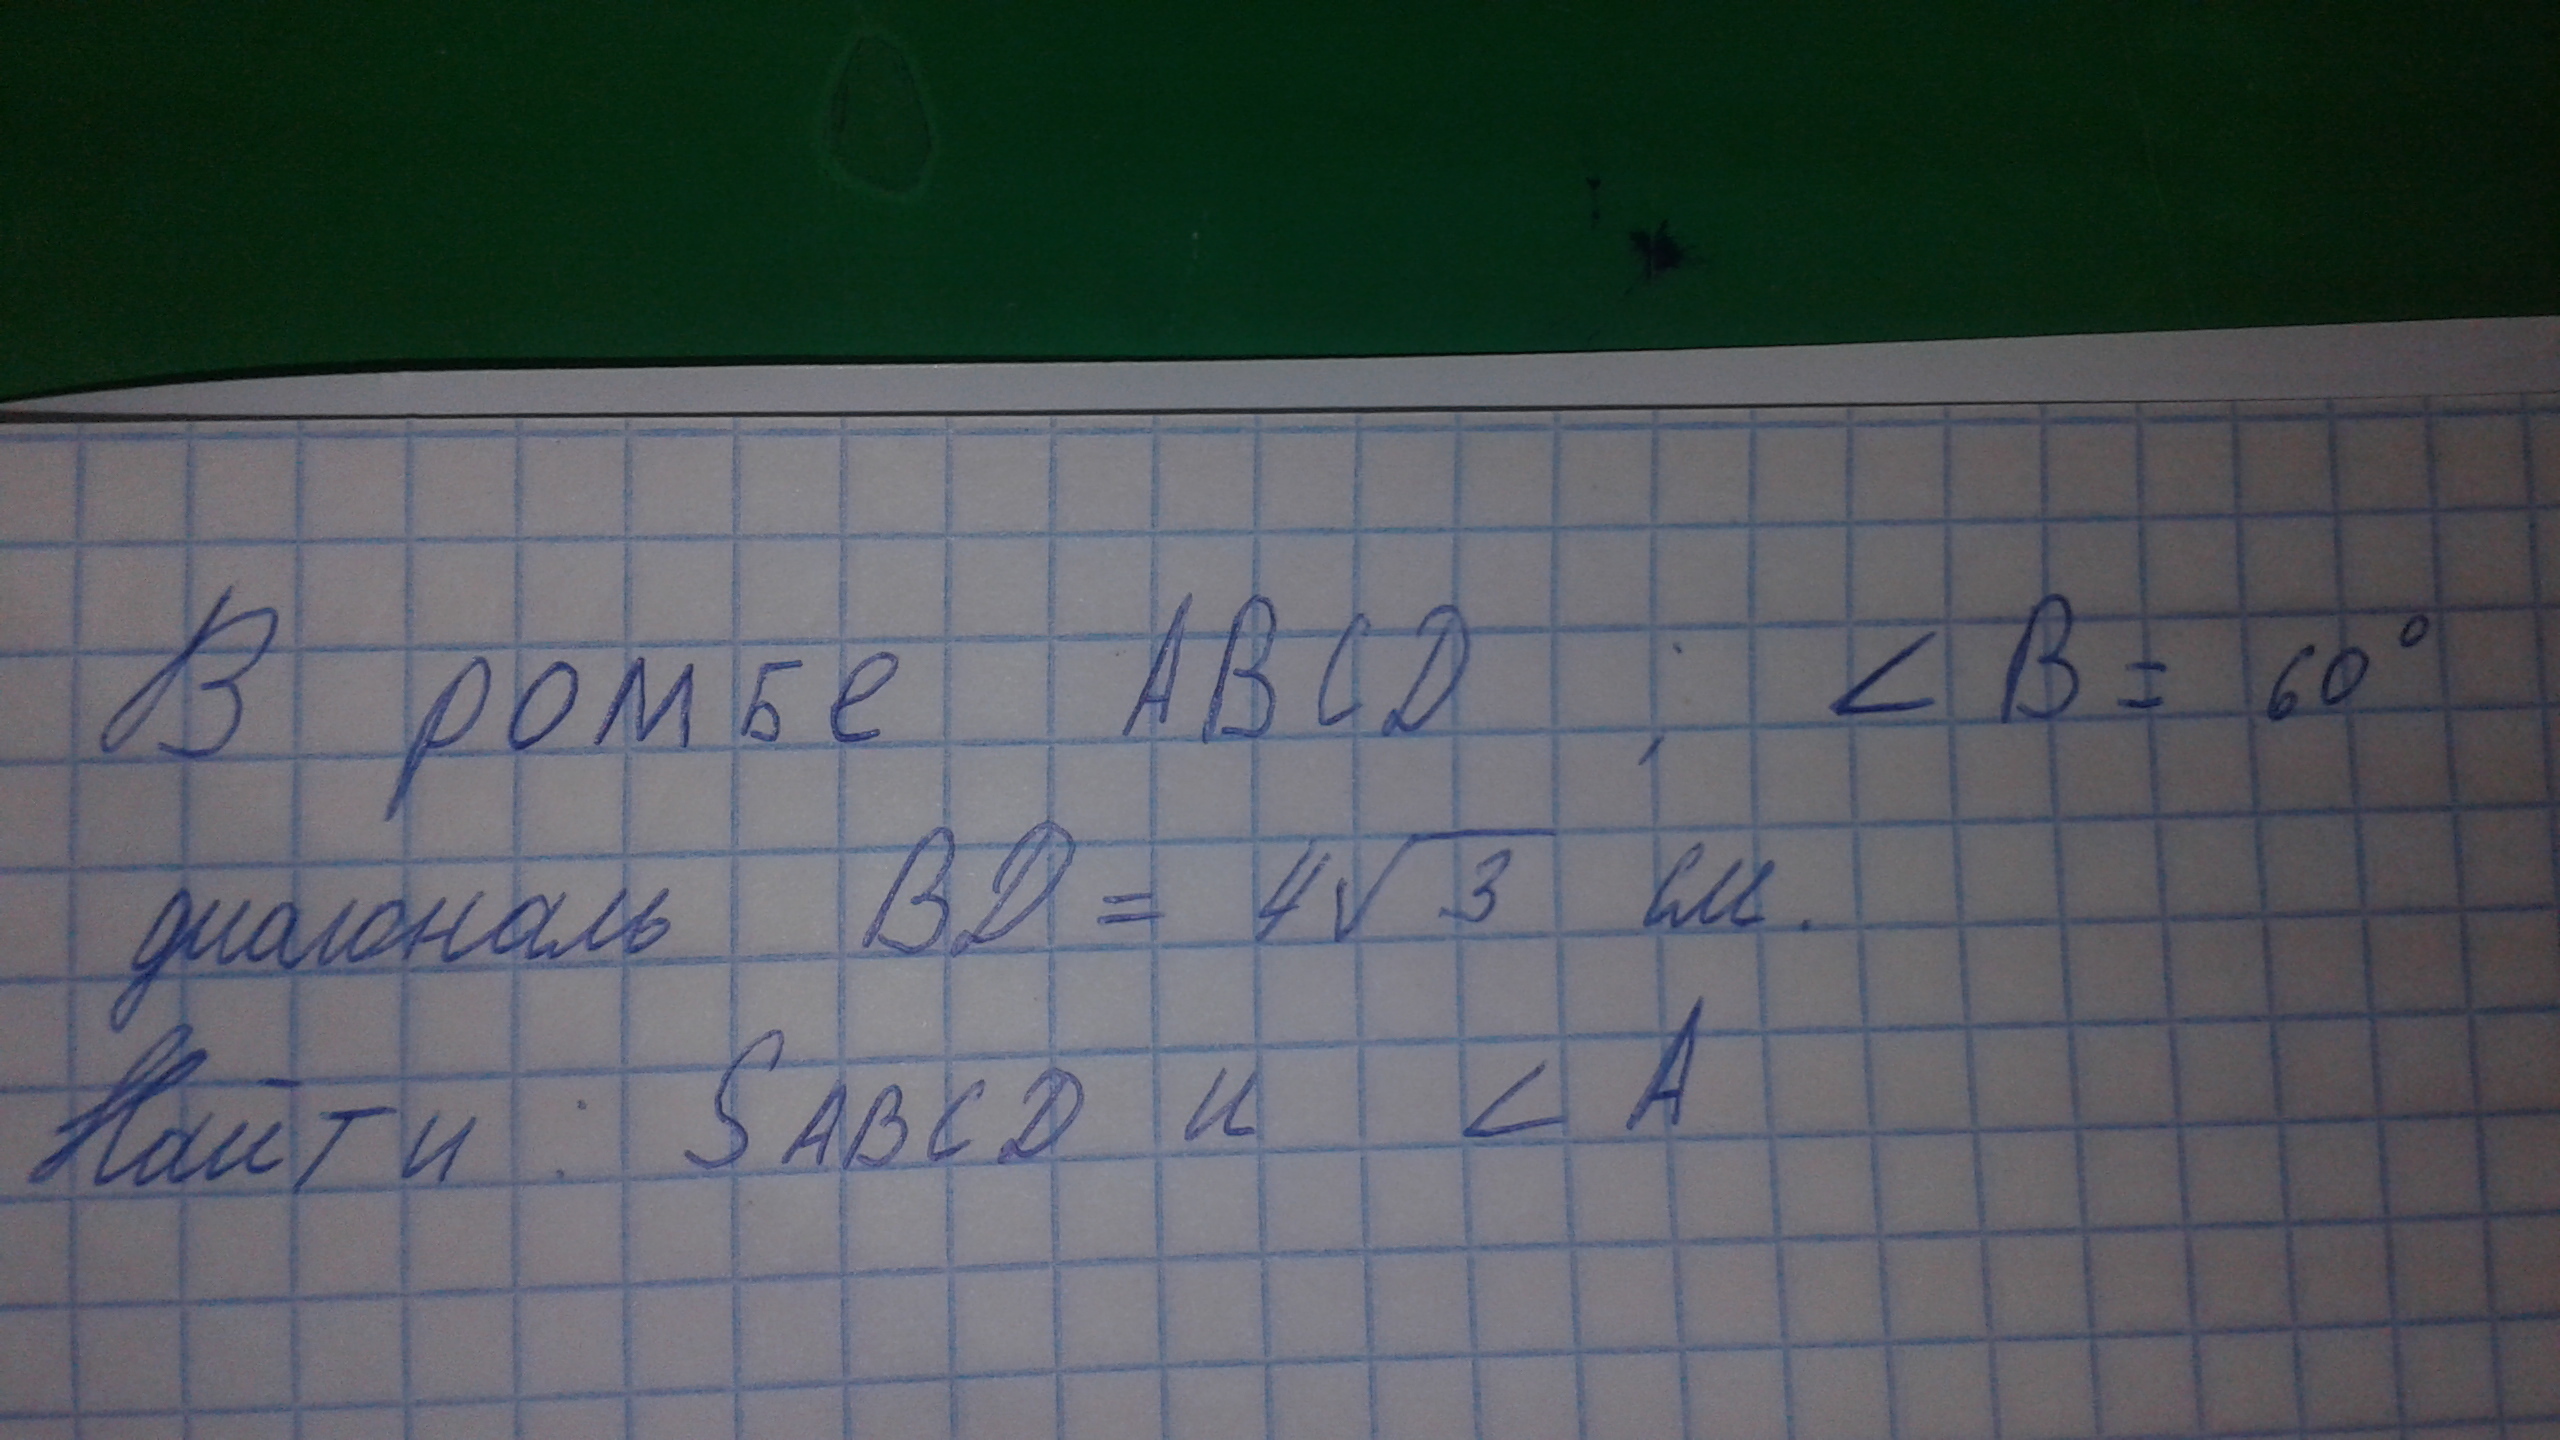 В ромбе ABCD ; ∠B = 60°
диагональ BD = 4√3 см.
Найти : SABCD и ∠A